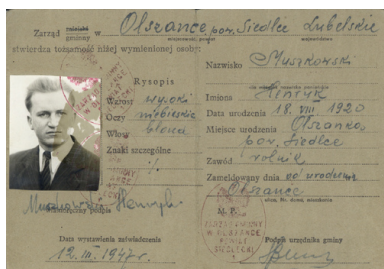 Zarząd gminny w Olszance pow. Siedlce Lubelskie
stwierdza tożsamość niżej wymienionej osoby:
Rysopis
Wzrost wysoki
Oczy niebieskie
Włosy blond
Znaki szczególne
własnoręczny podpis
Data wystawienia zaświadczenia
12. III. 1947 r.
Nazwisko Muszkowski
Imiona Henryk
Data urodzenia 18. VIII 1920
Miejsce urodzenia Olszanka,
pow. Siedlce
Zawód rolnik
Zameldowany dnia od urodzenia
Olszance
M. P.
ZARZĄD GMINNY
W OLSZANCE
POWIAT
SIEDLECKI
Podpis urzędnika gminy